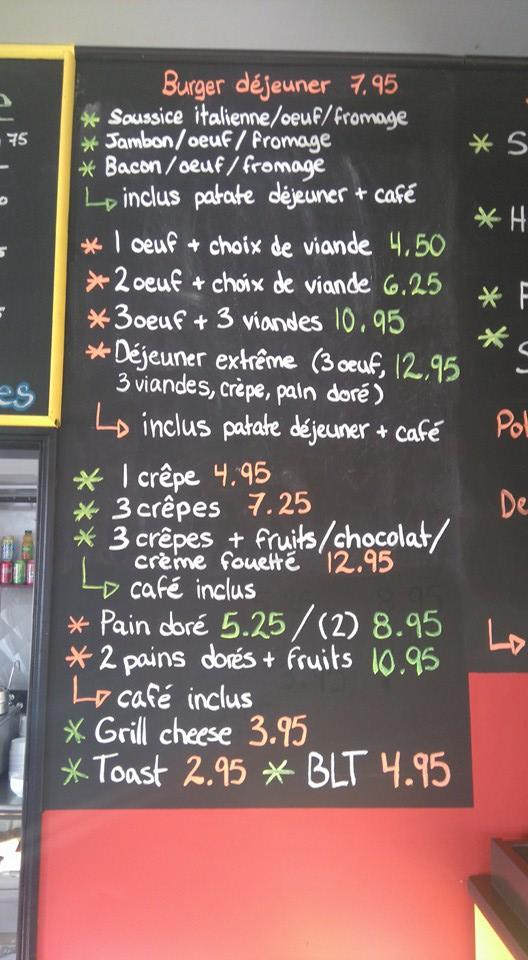 Burger déjeuner 7.95
* Saussice italienne/oeuf/fromage
* Jambon/oeuf/fromage
* Bacon/oeuf/fromage
↳ inclus patate déjeuner + café
* 1 oeuf + choix de viande 4.50
* 2 oeuf + choix de viande 6.25
* 3 oeuf + 3 viandes 10.95
* Déjeuner extrême (3 oeuf, 12.95
3 viandes, crèpe, pain doré)
↳ inclus patate déjeuner + café
* 1 crêpe 4.95
* 3 crêpes 7.25
* 3 crêpes + fruits/chocolat/
crème fouetté 12.95
↳ café inclus
* Pain doré 5.25 / (2) 8.95
* 2 pains dorés + fruits 10.95
↳ café inclus
* Grill cheese 3.95
* Toast 2.95 * BLT 4.95